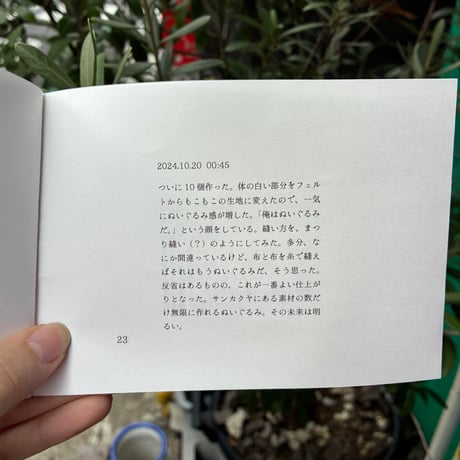 2024.10.20 00:45
ついに10個作った。体の白い部分をフェル
トからもこもこの生地に変えたので、一気
にぬいぐるみ感が増した。「俺はぬいぐるみ
だ。」という顔をしている。縫い方を、まつ
り縫い（？）のようにしてみた。多分、な
にか間違っているけど、布と布を糸で縫え
ばそれはもうぬいぐるみだ、そう思った。
反省はあるものの、これが一番よい仕上が
りとなった。サンカクヤにある素材の数だ
け無限に作れるぬいぐるみ。その未来は明
るい。
23